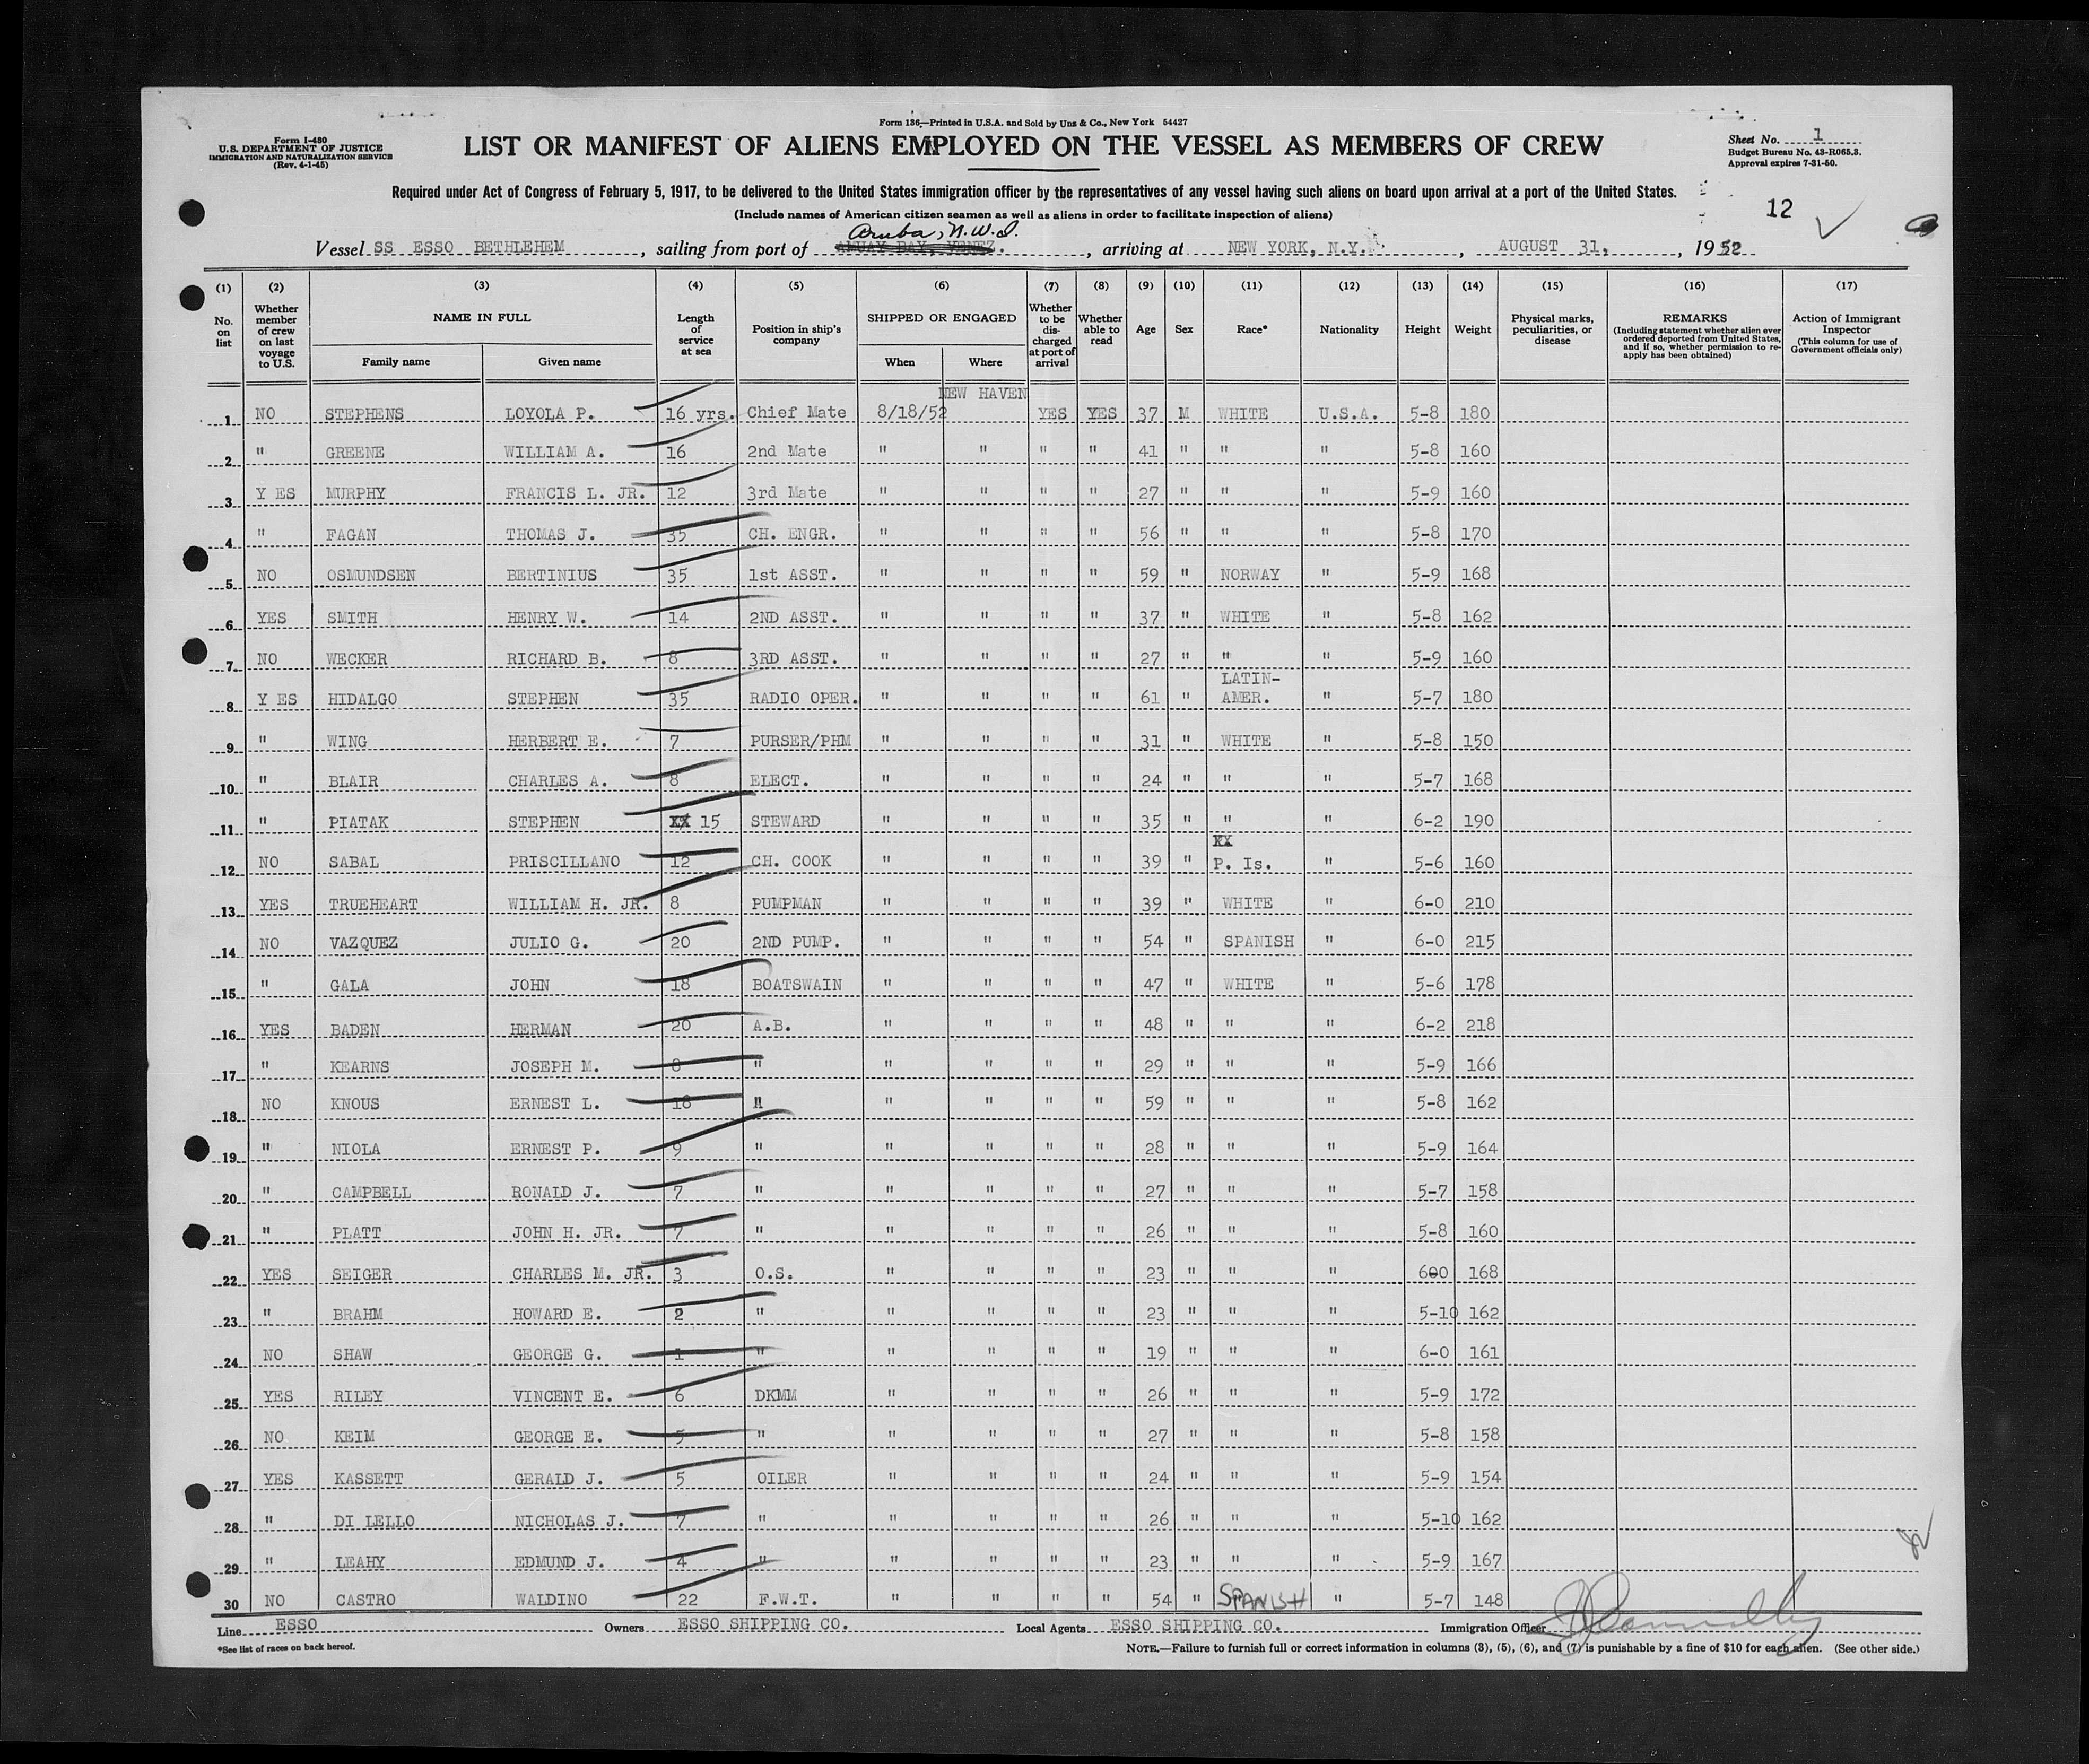 Form 136—Printed in U.S.A. and Sold by Unz & Co., New York 54427
Form I-480
U.S. DEPARTMENT OF JUSTICE
IMMIGRATION AND NATURALIZATION SERVICE
(Rev. 4-1-45)
LIST OR MANIFEST OF ALIENS EMPLOYED ON THE VESSEL AS MEMBERS OF CREW
Sheet No. 1
Budget Bureau No. 43-R065.3.
Approval expires 7-31-50.
Required under Act of Congress of February 5, 1917, to be delivered to the United States immigration officer by the representatives of any vessel having such aliens on board upon arrival at a port of the United States.
(Include names of American citizen seamen as well as aliens in order to facilitate inspection of aliens)
12
Aruba, N.W.I.
Vessel SS ESSO BETHLEHEM, sailing from port of AMUAY BAY, VENEZ., arriving at NEW YORK, N.Y., AUGUST 31, 1952
(1) (2) (3) (4) (5) (6) (7) (8) (9) (10) (11) (12) (13) (14) (15) (16) (17)
No. on list
Whether member of crew on last voyage to U.S.
NAME IN FULL
Family name
Given name
Length of service at sea
Position in ship's company
SHIPPED OR ENGAGED
When
Where
Whether to be discharged at port of arrival
Whether able to read
Age
Sex
Race*
Nationality
Height
Weight
Physical marks, peculiarities, or disease
REMARKS
(Including statement whether alien ever ordered deported from United States, and if so, whether permission to re-apply has been obtained)
Action of Immigrant Inspector
(This column for use of Government officials only)
NEW HAVEN
1 NO STEPHENS LOYOLA P. 16 yrs. Chief Mate 8/18/52 YES YES 37 M WHITE U.S.A. 5-8 180
2 " GREENE WILLIAM A. 16 2nd Mate " " " " 41 " " " 5-8 160
3 Y ES MURPHY FRANCIS L. JR. 12 3rd Mate " " " " 27 " " " 5-9 160
4 " FAGAN THOMAS J. 35 CH. ENGR. " " " " 56 " " " 5-8 170
5 NO OSMUNDSEN BERTINIUS 35 1st ASST. " " " " 59 " NORWAY " 5-9 168
6 YES SMITH HENRY W. 14 2ND ASST. " " " " 37 " WHITE " 5-8 162
7 NO WECKER RICHARD B. 8 3RD ASST. " " " " 27 " " " 5-9 160
LATIN-
8 Y ES HIDALGO STEPHEN 35 RADIO OPER. " " " " 61 " AMER. " 5-7 180
9 " WING HERBERT E. 7 PURSER/PHM " " " " 31 " WHITE " 5-8 150
10 " BLAIR CHARLES A. 8 ELECT. " " " " 24 " " " 5-7 168
11 " PIATAK STEPHEN XX 15 STEWARD " " " " 35 " " " 6-2 190
XX
12 NO SABAL PRISCILLANO 12 CH. COOK " " " " 39 " P. Is. " 5-6 160
13 YES TRUEHEART WILLIAM H. JR. 8 PUMPMAN " " " " 39 " WHITE " 6-0 210
14 NO VAZQUEZ JULIO G. 20 2ND PUMP. " " " " 54 " SPANISH " 6-0 215
15 " GALA JOHN 18 BOATSWAIN " " " " 47 " WHITE " 5-6 178
16 YES BADEN HERMAN 20 A.B. " " " " 48 " " " 6-2 218
17 " KEARNS JOSEPH M. 8 " " " " " 29 " " " 5-9 166
18 NO KNOUS ERNEST L. 18 " " " " " 59 " " " 5-8 162
19 " NIOLA ERNEST P. 9 " " " " " 28 " " " 5-9 164
20 " CAMPBELL RONALD J. 7 " " " " " 27 " " " 5-7 158
21 " PLATT JOHN H. JR. 7 " " " " " 26 " " " 5-8 160
22 YES SEIGER CHARLES M. JR. 3 O.S. " " " " 23 " " " 6-0 168
23 " BRAHM HOWARD E. 2 " " " " " 23 " " " 5-10 162
24 NO SHAW GEORGE G. 1 " " " " " 19 " " " 6-0 161
25 YES RILEY VINCENT E. 6 DKMM " " " " 26 " " " 5-9 172
26 NO KEIM GEORGE E. 5 " " " " " 27 " " " 5-8 158
27 YES KASSETT GERALD J. 5 OILER " " " " 24 " " " 5-9 154
28 " DI LELLO NICHOLAS J. 7 " " " " " 26 " " " 5-10 162
29 " LEAHY EDMUND J. 4 " " " " " 23 " " " 5-9 167
30 NO CASTRO WALDINO 22 F.W.T. " " " " 54 " SPANISH " 5-7 148
Line ESSO Owners ESSO SHIPPING CO. Local Agents ESSO SHIPPING CO. Immigration Officer
*See list of races on back hereof.
NOTE.—Failure to furnish full or correct information in columns (3), (5), (6), and (7) is punishable by a fine of $10 for each alien. (See other side.)